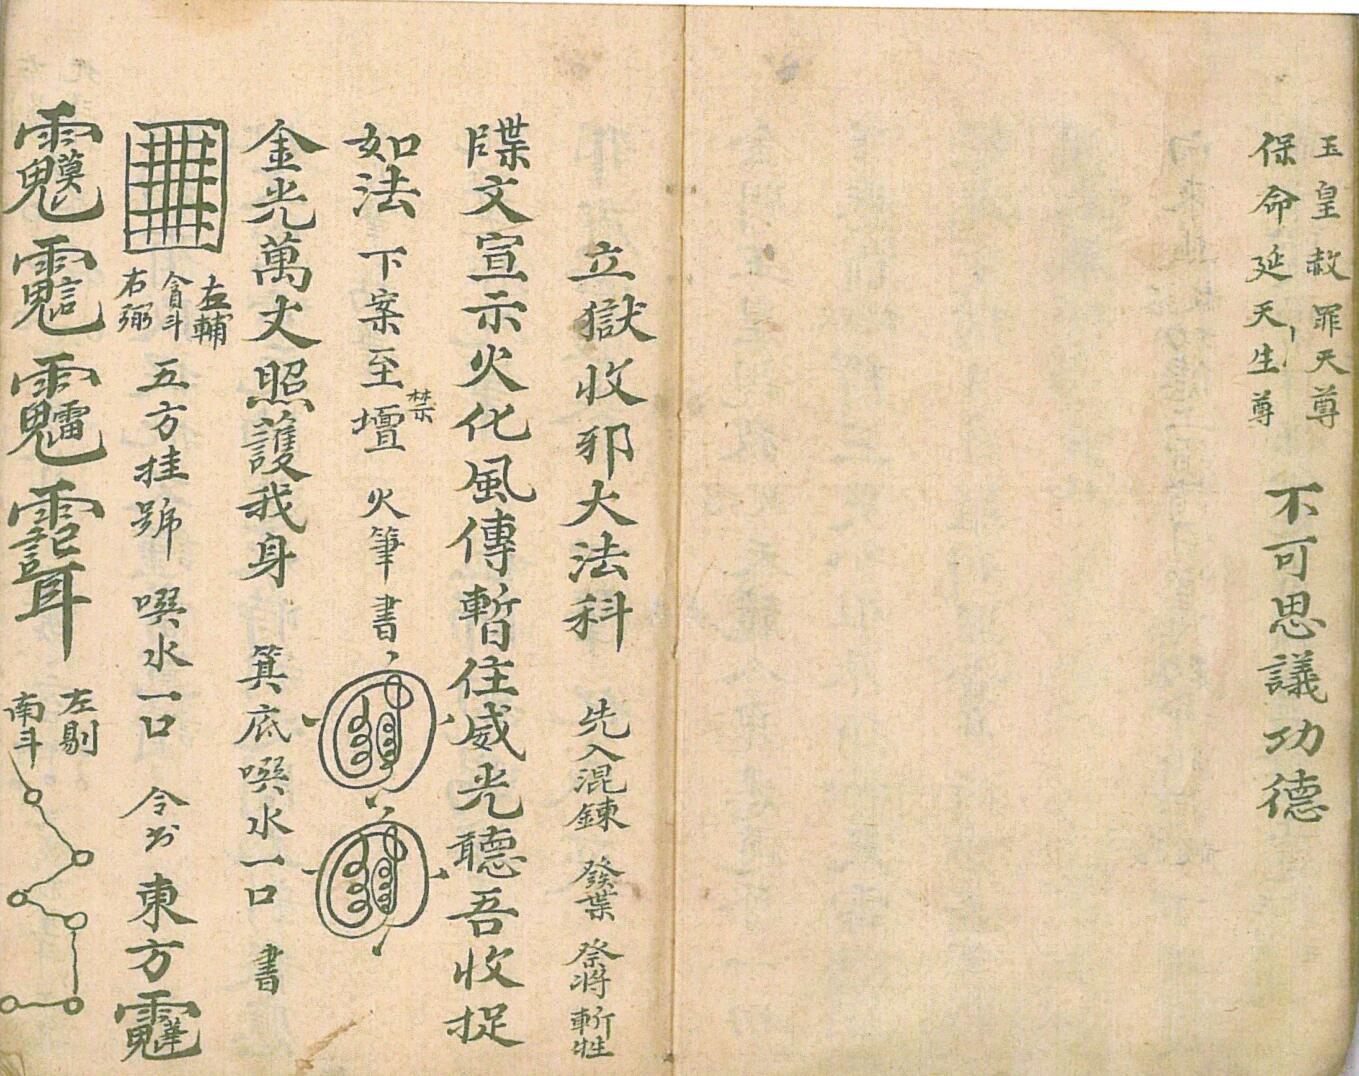 玉皇赦罪天尊
保命延生天尊
不可思議功德
立獄收邪大法科 先入混鍊 發葉 祭將 斬牲
牒文宣示火化風傳暫住威光聽吾收捉
如法 下案至禁壇 火筆書
金光萬丈照護我身 箕底噀水一口 書
左輔
貪斗
右弼
五方挂號 噀水一口 令書 東方
左剔
南斗